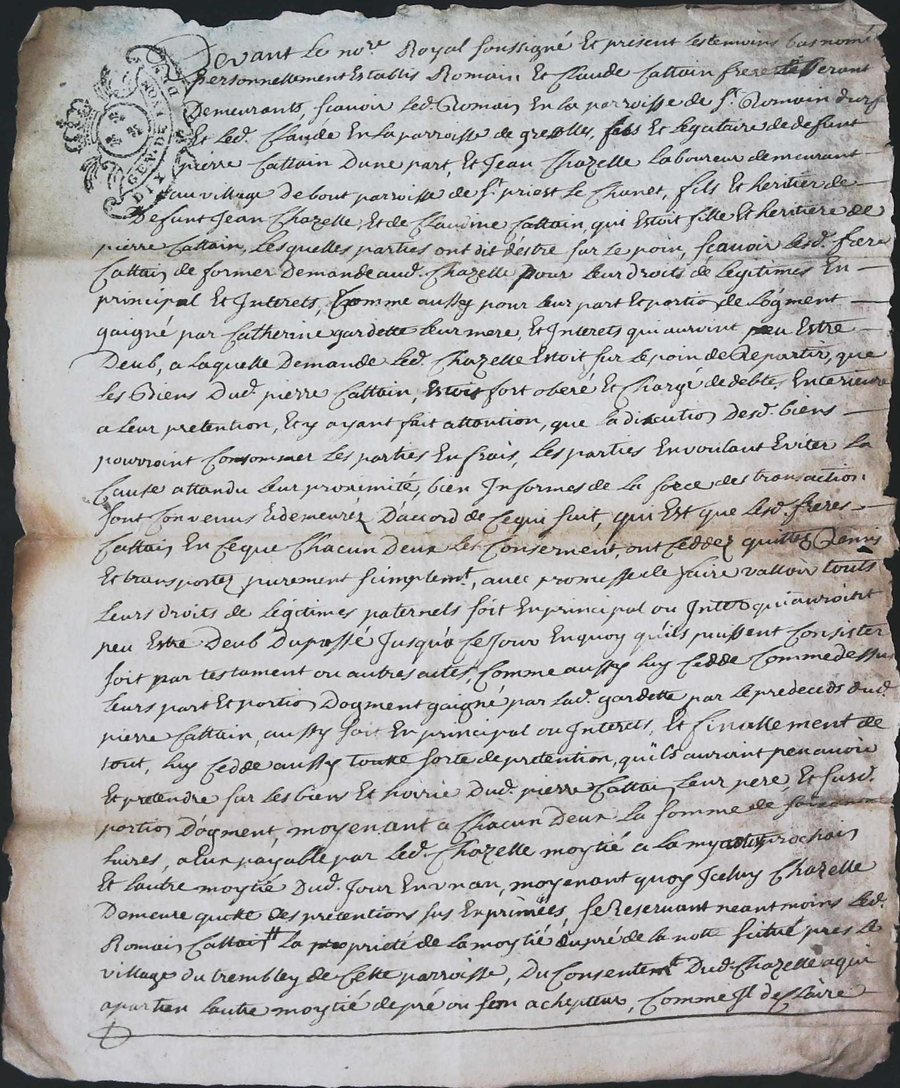 GEN. DE LYON
DIX
Devant Le nore Royal soussigné Et present Les temoins bas només
personnellement Establis Romain Et Claude Cattain frere
Demeurants, scavoir Led. Romain En La parroisse de st. Romain durfé
Et Led. Claude En La parroisse de grezolles, fils Et Legataire de defunt
pierre Cattain Dune part, Et Jean Chazelle Laboureur demeurant
au village De bout parroisse de st. priest La Chanet, fils Et heritier de
Defunt Jean Chazelle, Et de Claudine Cattain, qui Estoit fille Et heritiere de
pierre Cattain, Lesquelles parties ont dit d'estre sur Le poin, scavoir Lesd. frere
Cattain de former Demande aud. Chazelle pour Leur droits de Legitimes En
principal Et Interets, Comme aussy pour Leur part Et portion de Logment
gaigné par Catherine gardette Leur mere, Et Interets qui auroint peu Estre
Deub, a Laquelle Demande Led. Chazelle Estoit sur Le poin de Repartir, que
Les Biens Dud. pierre Cattain, Estoit fort oberé Et Chargé de debtes Enterieure
a Leur pretention, Et y ayant fait attention, que La discution Desd. biens
pourroint Consommer Les parties En frais, Les parties En voulant Eviter La
Cause attandu Leur proximité, bien Informés de La force des transaction
sont Convenus Et demeurez D'accord de Ce qui suit, qui Est que Lesd. freres
Cattain En Ce que Chacun Deux Les Consernent, ont Ceddez quittez Remis
Et transportez purement Simplemt, avec promesse de faire valloir touts
Leurs droits de Legitimes paternels soit En principal ou Interets qui auroint
peu Estre Deub Du passé Jusqu'a Ce Jour En quoy qu'ils puissent Consister
soit par testament ou autres actes, Comme aussy Luy Cedde Comme dessus
Leurs part Et portion Dogment gaigné par Lad. gardette par Le predeceds dud.
pierre Cattain, aussy soit En principal ou Interets, Et finallement de
tout, Luy Cedde aussy toutte sorte de pretention, qu'ils auroint peu avoir
Et pretendre sur Les biens Et hoirie Dud. pierre Cattain Leur pere, Et susd.
portion D'ogment, moyenant a Chacun Deux La somme de
Livres, a Eux payable par Led. Chazelle moytié a La my prochain
Et L'autre moytié Dud. Jour En un an, moyenant quoy Iceluy Chazelle
Demeure quitte des pretentions sus Exprimées, se Reservant neant moins Led.
Romain Cattain La proprieté de La moytié du pré de La notte situé pres Le
village du tremblay de Cette parroisse, Du Consentemt Dud. Chazelle a qui
apartien Lautre moytié de pré ou son achepteur, Comme Il declaire